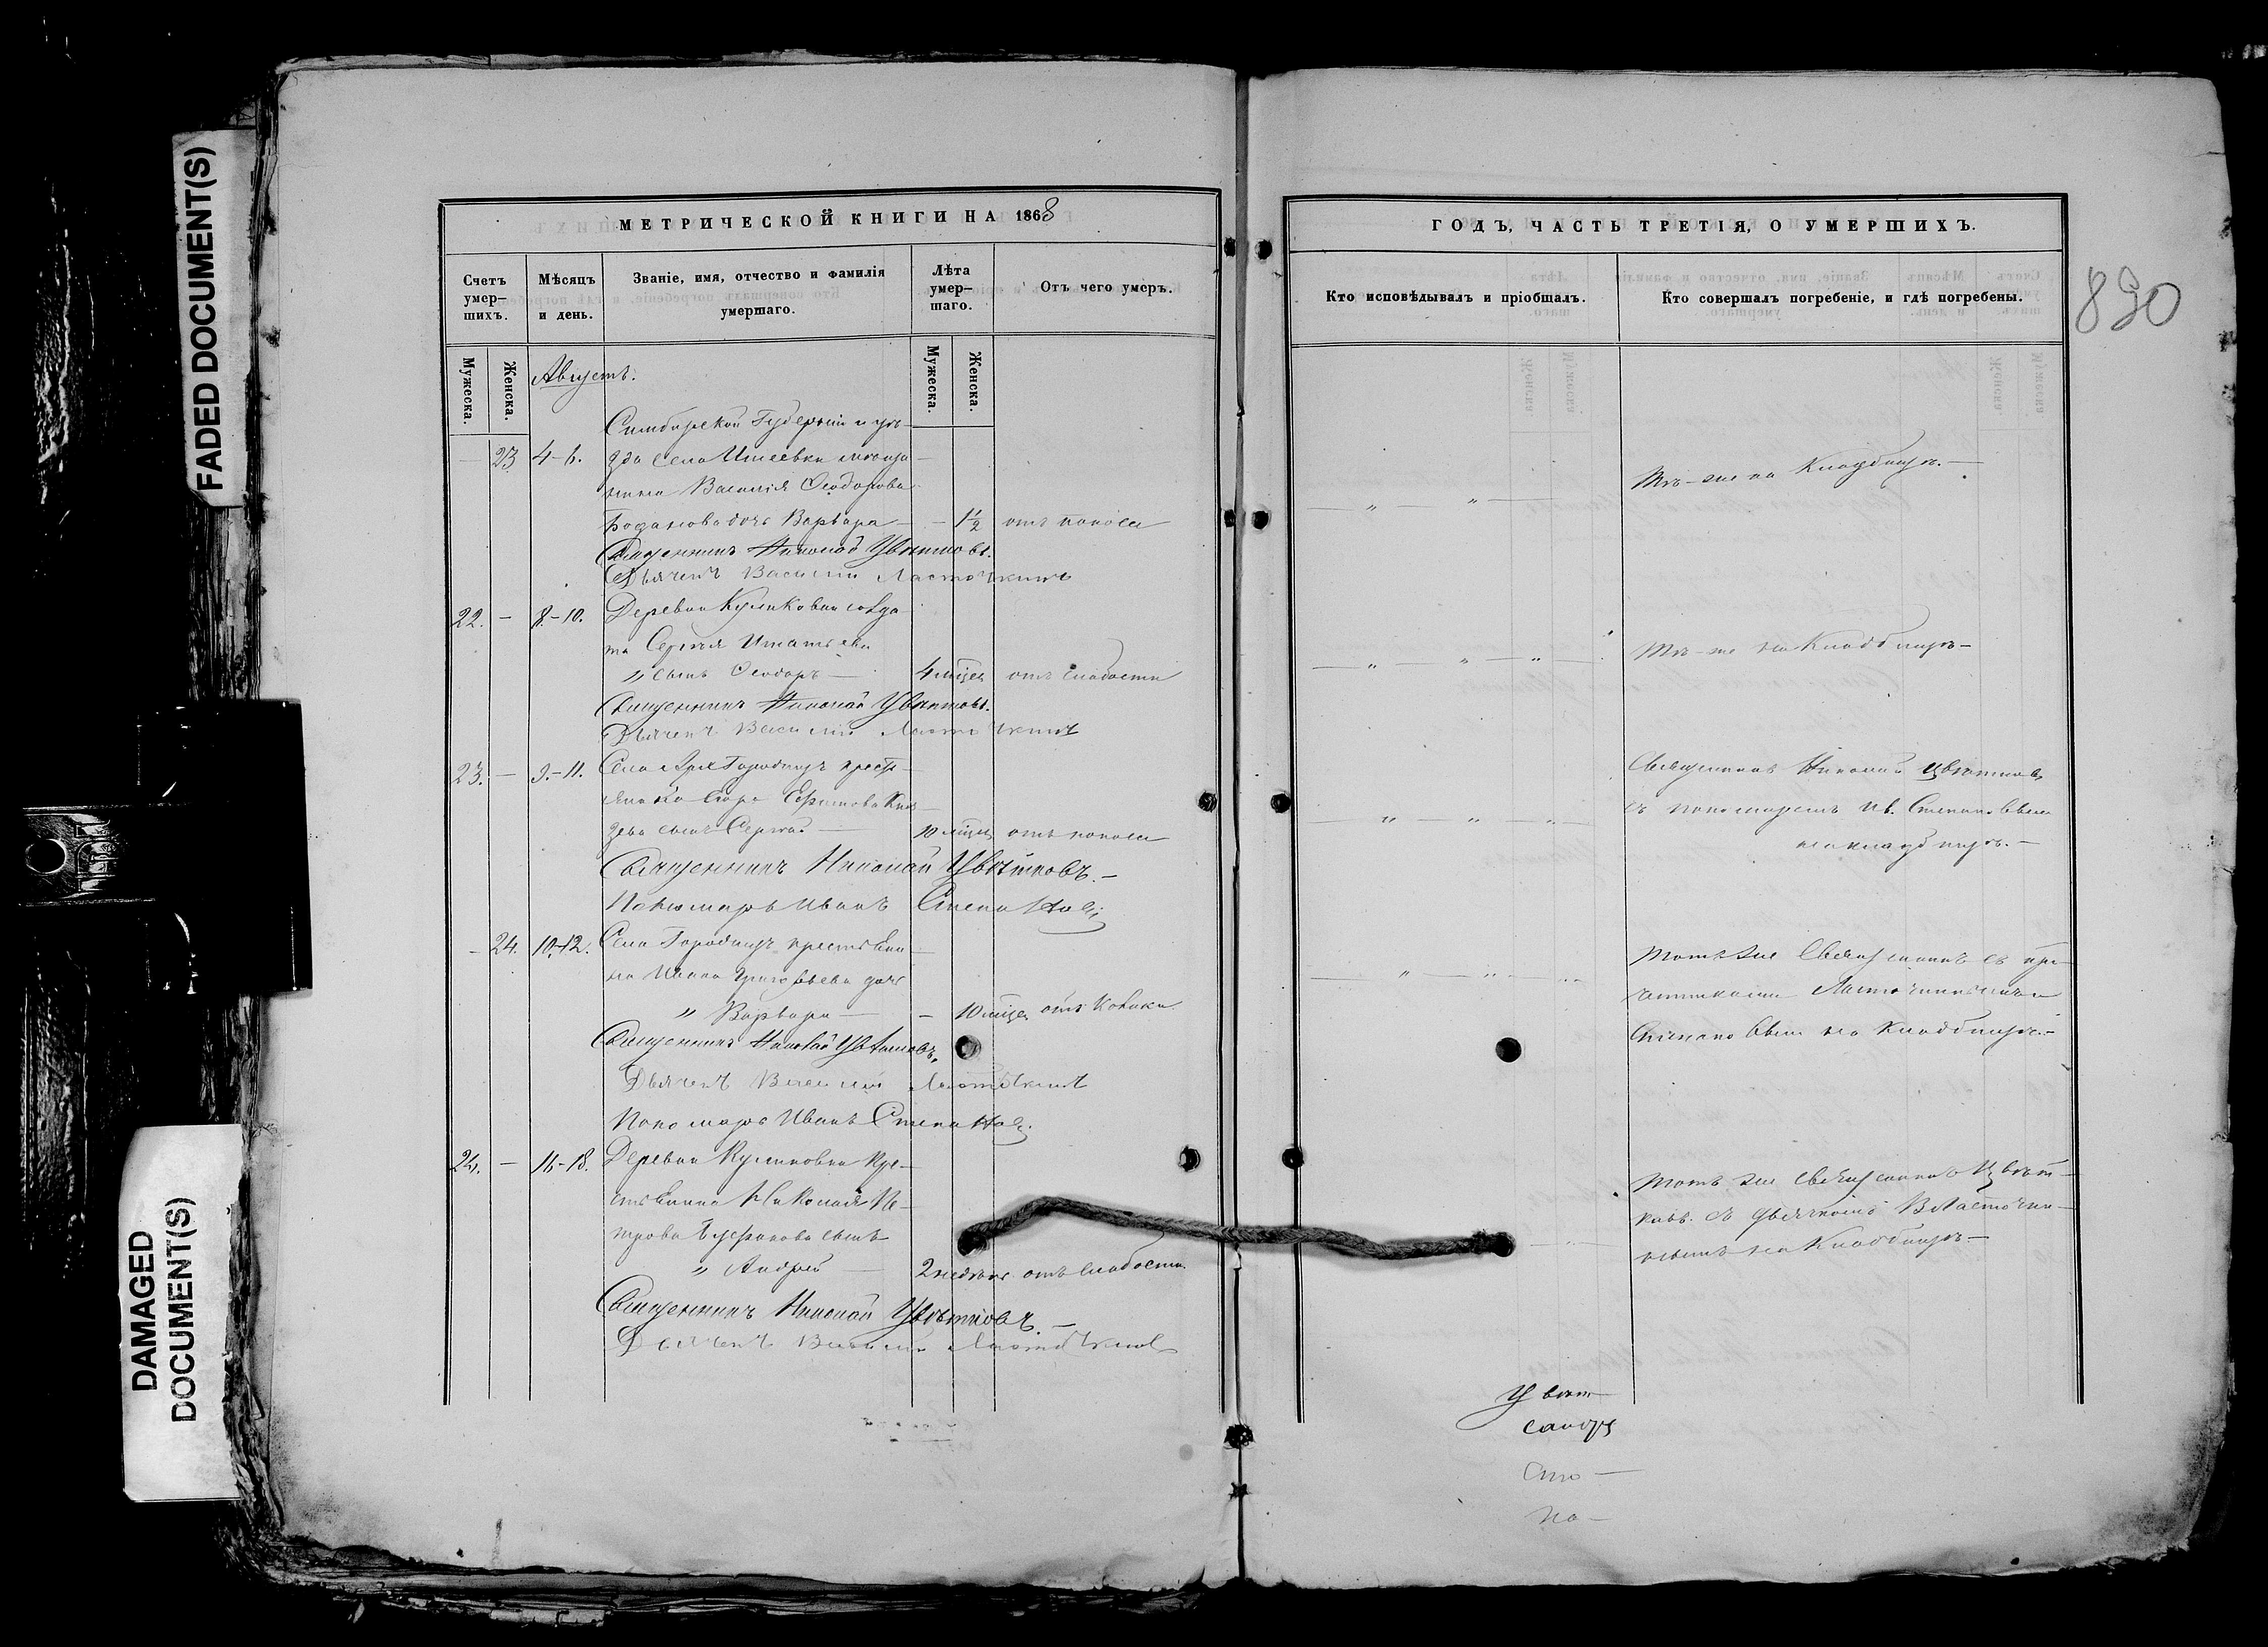 FADED DOCUMENT(S)
DAMAGED
DOCUMENT(S)
МЕТРИЧЕСКОЙ КНИГИ НА 1868
Счетъ умер-шихъ.
Мѣсяцъ и день.
Званіе, имя, отчество и фамилія умершаго.
Лѣта умер-шаго.
Отъ чего умеръ.
Мужеска.
Женска.
Мужеска.
Женска.
Августъ.
Симбирской Губерніи и уѣ-
— 23 4-6. зда села
Василія Ѳеодорова
дочь Варвара — — 1½ отъ поноса
Священникъ Николай Цвѣтковъ.
Дьячекъ Василій Ласточкинъ
22. — 8.-10. Деревни Куликовки солда-
та Сергѣя Игнатьева
„ сынъ Ѳеодоръ — 4 мѣсяц отъ слабости
Священникъ Николай Цвѣтковъ.
Дьячекъ Василій Ласточкинъ
23. — 9.-11. Села Городищъ крестъ-
янина Ефимова Кня-
зева сынъ Сергѣй — 10 мѣсяц отъ поноса
Священникъ Николай Цвѣтковъ. —
Пономарь Иванъ Степановъ
— 24. 10-12. Села Городищъ крестьяни-
на Ивана Григорьева дочь
„ Варвара — — 10 мѣсяц отъ
Священникъ Николай Цвѣтковъ.
Дьячекъ Василій Ласточкинъ
Пономарь Иванъ Степановъ
24. — 16-18. Деревни Куликовки кре-
стьянина Николая Пе-
трова сынъ
„ Андрей — 2 недѣль отъ слабости
Священникъ Николай Цвѣтковъ. —
Дьячекъ Василій Ласточкинъ
ГОДЪ, ЧАСТЬ ТРЕТІЯ, О УМЕРШИХЪ.
Кто исповѣдывалъ и пріобщалъ.
Кто совершалъ погребеніе, и гдѣ погребены.
890
Тѣ-же на Кладбищѣ. —
Тѣ-же на Кладбищѣ —
Священникъ Николай Цвѣтковъ
съ пономаремъ Ив. Степановымъ
на кладбищѣ. —
Тотъ же Священникъ съ при-
четниками Ласточкинымъ и
Степановымъ на Кладбищѣ. —
Тотъ же священникъ Цвѣт-
ковъ съ дьячкомъ В Ласточки-
нымъ на Кладбищѣ —
Цвѣт
Сто —
по —